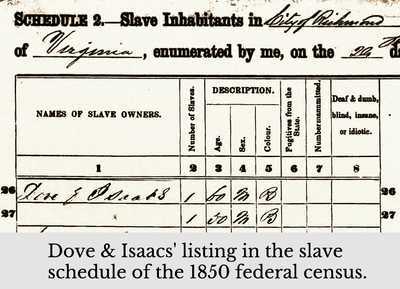 SCHEDULE 2.—Slave Inhabitants in City of Richmond
of Virginia, enumerated by me, on the 29th d
NAMES OF SLAVE OWNERS.
Number of Slaves.
DESCRIPTION.
Age.
Sex.
Colour.
Fugitives from the State.
Number manumitted.
Deaf & dumb, blind, insane, or idiotic.
1 2 3 4 5 6 7 8
26 Dove & Isaacs 1 60 M B 26
27 1 50 M B 27
Dove & Isaacs' listing in the slave
schedule of the 1850 federal census.